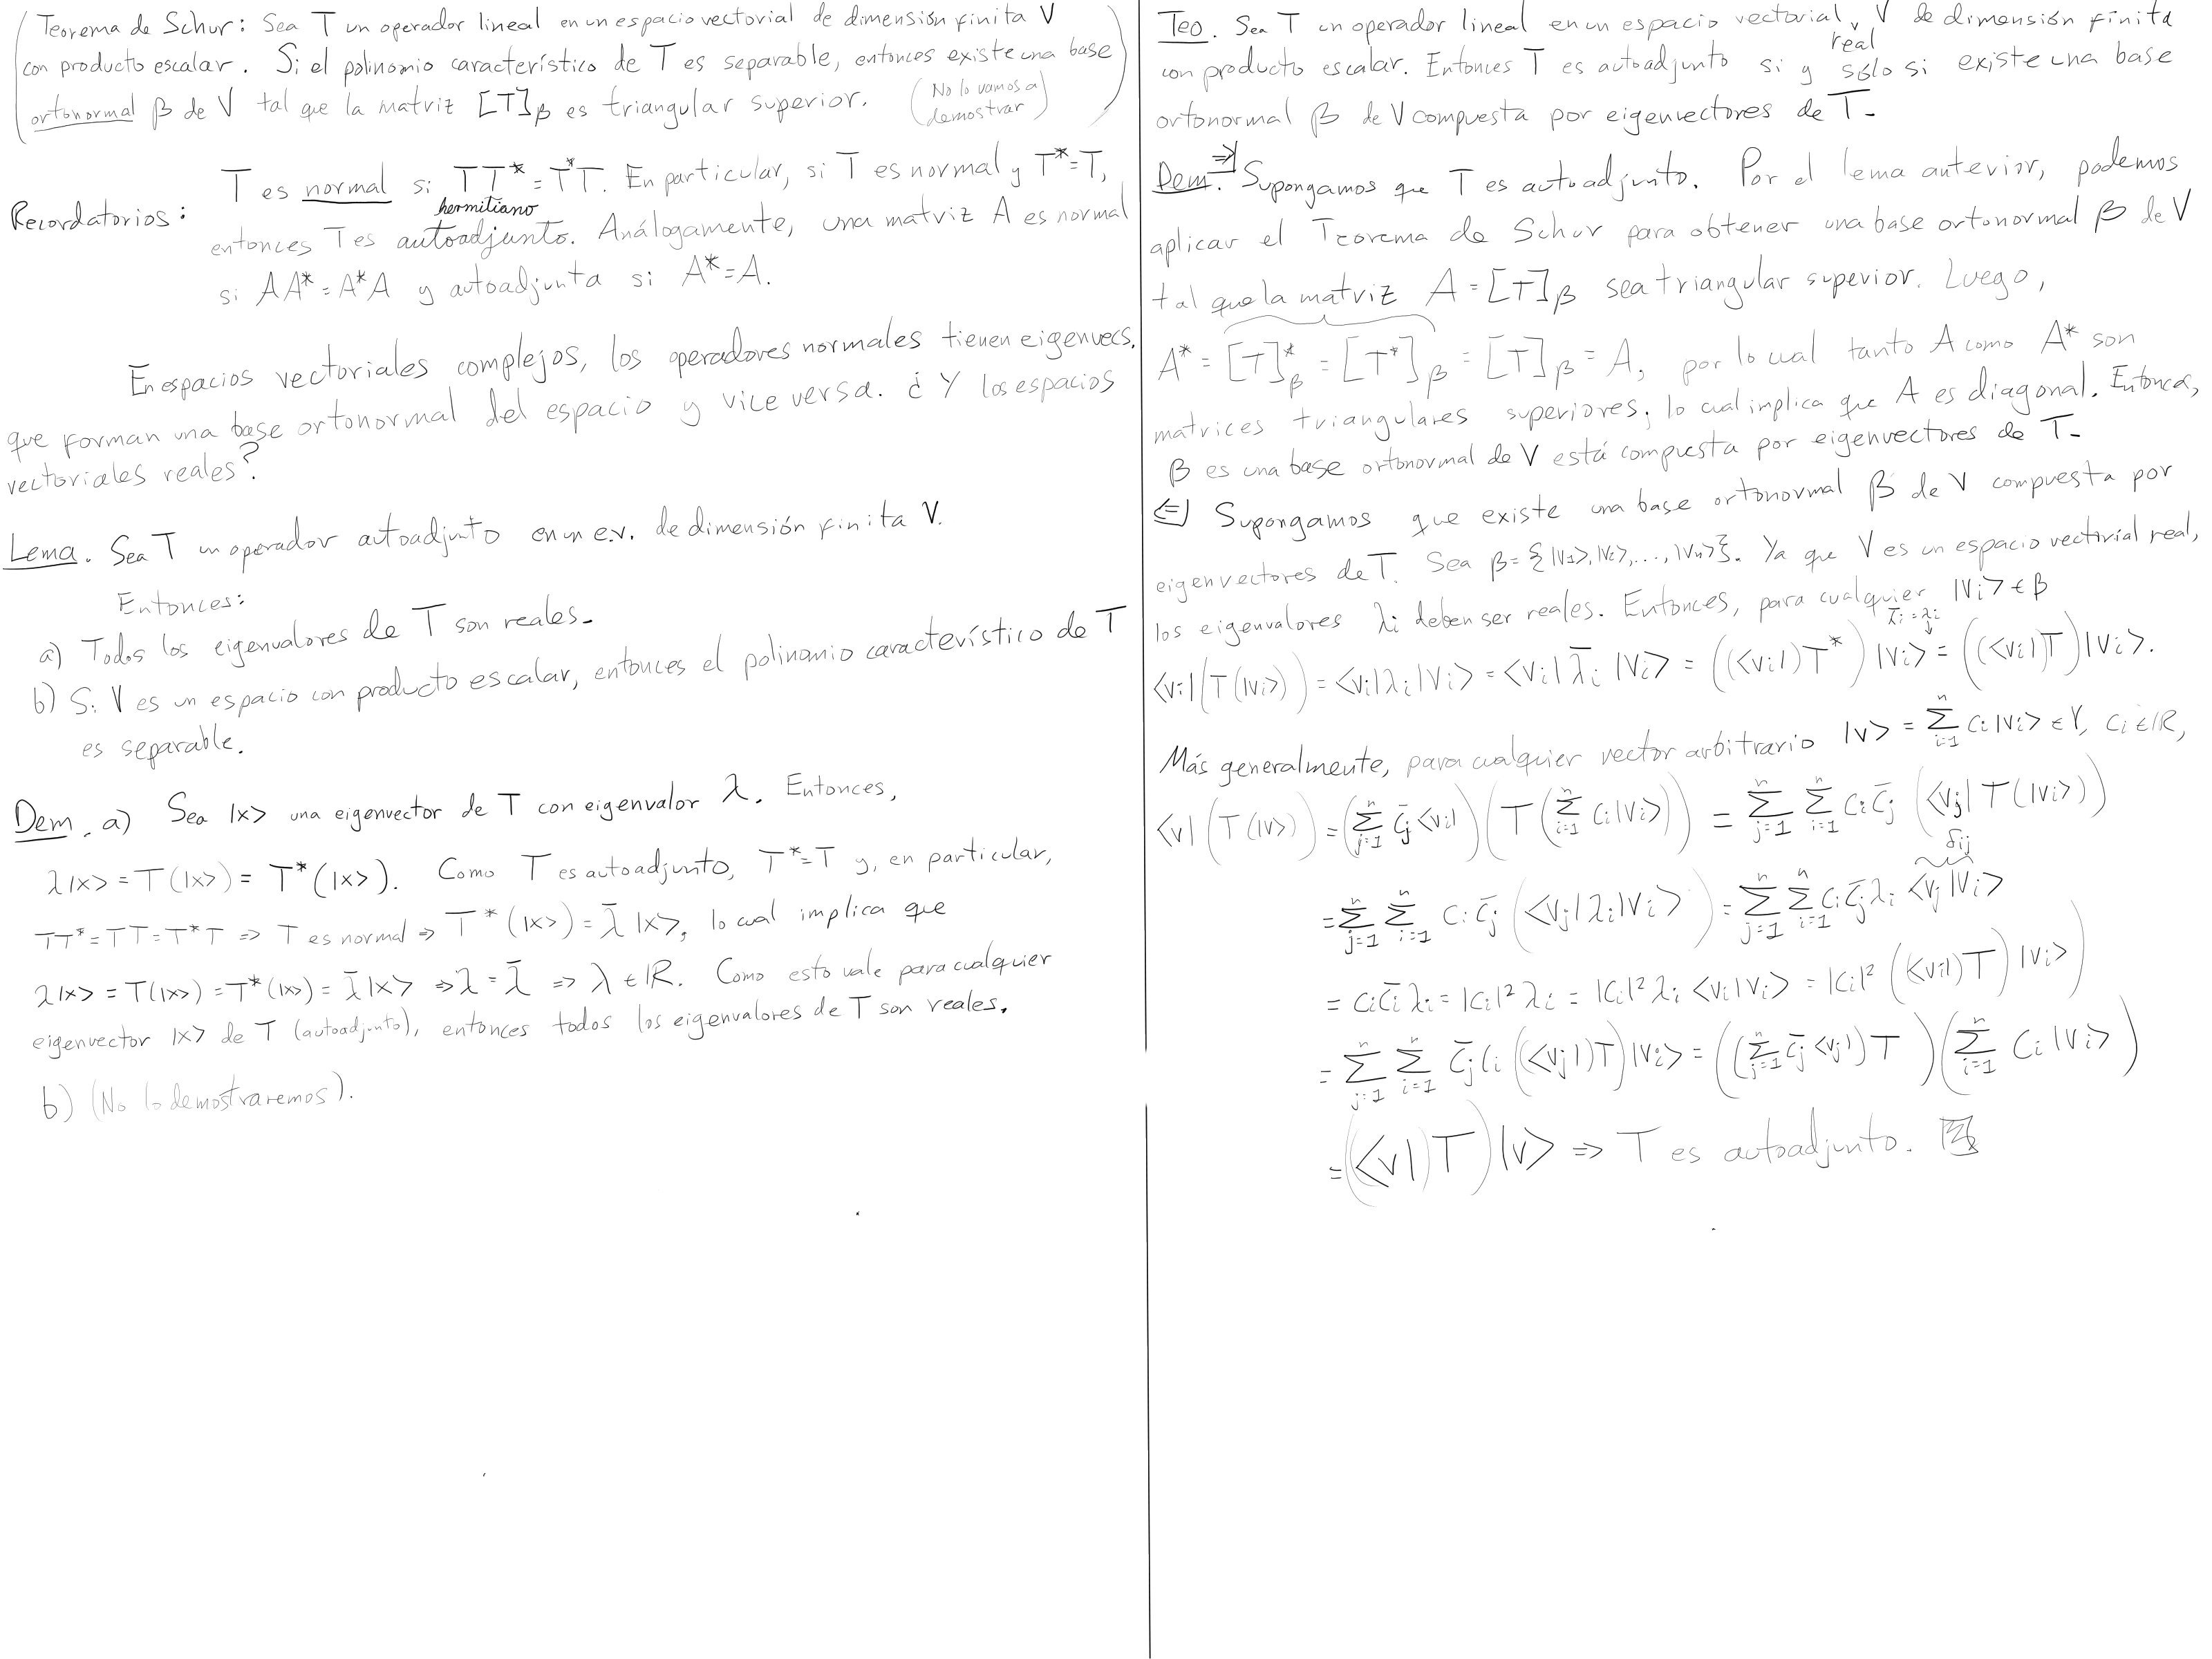 (Teorema de Schur: Sea T un operador lineal en un espacio vectorial de dimensión finita V
con producto escalar. Si el polinomio característico de T es separable, entonces existe una base
ortonormal β de V tal que la matriz [T]_β es triangular superior. (No lo vamos a demostrar))
Recordatorios: T es normal si TT* = T*T. En particular, si T es normal y T* = T,
hermitiano
entonces T es autoadjunto. Análogamente, una matriz A es normal
si AA* = A*A y autoadjunta si A* = A.
En espacios vectoriales complejos, los operadores normales tienen eigenvecs.
que forman una base ortonormal del espacio y viceversa. ¿Y los espacios
vectoriales reales?
Lema. Sea T un operador autoadjunto en un e.v. de dimensión finita V.
Entonces:
a) Todos los eigenvalores de T son reales.
b) Si V es un espacio con producto escalar, entonces el polinomio característico de T
es separable.
Dem. a) Sea |x> una eigenvector de T con eigenvalor λ. Entonces,
λ|x> = T(|x>) = T*(|x>). Como T es autoadjunto, T* = T y, en particular,
TT* = TT = T*T ⇒ T es normal ⇒ T*(|x>) = λ̄|x>, lo cual implica que
λ|x> = T(|x>) = T*(|x>) = λ̄|x> ⇒ λ = λ̄ ⇒ λ ∈ ℝ. Como esto vale para cualquier
eigenvector |x> de T (autoadjunto), entonces todos los eigenvalores de T son reales.
b) (No lo demostraremos).
Teo. Sea T un operador lineal en un espacio vectorial real V de dimensión finita
con producto escalar. Entonces T es autoadjunto si y sólo si existe una base
ortonormal β de V compuesta por eigenvectores de T.
Dem. ⇒) Supongamos que T es autoadjunto. Por el lema anterior, podemos
aplicar el Teorema de Schur para obtener una base ortonormal β de V
tal que la matriz A = [T]_β sea triangular superior. Luego,
A* = [T]*_β = [T*]_β = [T]_β = A, por lo cual tanto A como A* son
matrices triangulares superiores, lo cual implica que A es diagonal. Entonces,
β es una base ortonormal de V está compuesta por eigenvectores de T.
⇐) Supongamos que existe una base ortonormal β de V compuesta por
eigenvectores de T. Sea β = {|v₁>, |v₂>, ..., |vₙ>}. Ya que V es un espacio vectorial real,
los eigenvalores λi deben ser reales. Entonces, para cualquier |vi> ∈ β
λ̄i = λi ↓
<vi|(T(|vi>)) = <vi|λi|vi> = <vi|λ̄i|vi> = ((<vi|)T*)|vi> = ((<vi|)T)|vi>.
Más generalmente, para cualquier vector arbitrario |v> = Σ_{i=1}^n ci|vi> ∈ V, ci ∈ ℝ,
<v|(T(|v>)) = (Σ_{j=1}^n c̄j<vi|)(T(Σ_{i=1}^n ci|vi>)) = Σ_{j=1}^n Σ_{i=1}^n ci c̄j (<vj|T(|vi>))
δij
= Σ_{j=1}^n Σ_{i=1}^n ci c̄j (<vj|λi|vi>) = Σ_{j=1}^n Σ_{i=1}^n ci c̄j λi <vj|vi>
= ci c̄i λi = |ci|² λi = |ci|² λi <vi|vi> = |ci|² ((<vi|)T)|vi>)
= Σ_{j=1}^n Σ_{i=1}^n c̄j ci ((<vj|)T)|vi> = ((Σ_{j=1}^n c̄j <vj|)T)(Σ_{i=1}^n ci|vi>)
= ((<v|)T)|v> ⇒ T es autoadjunto.